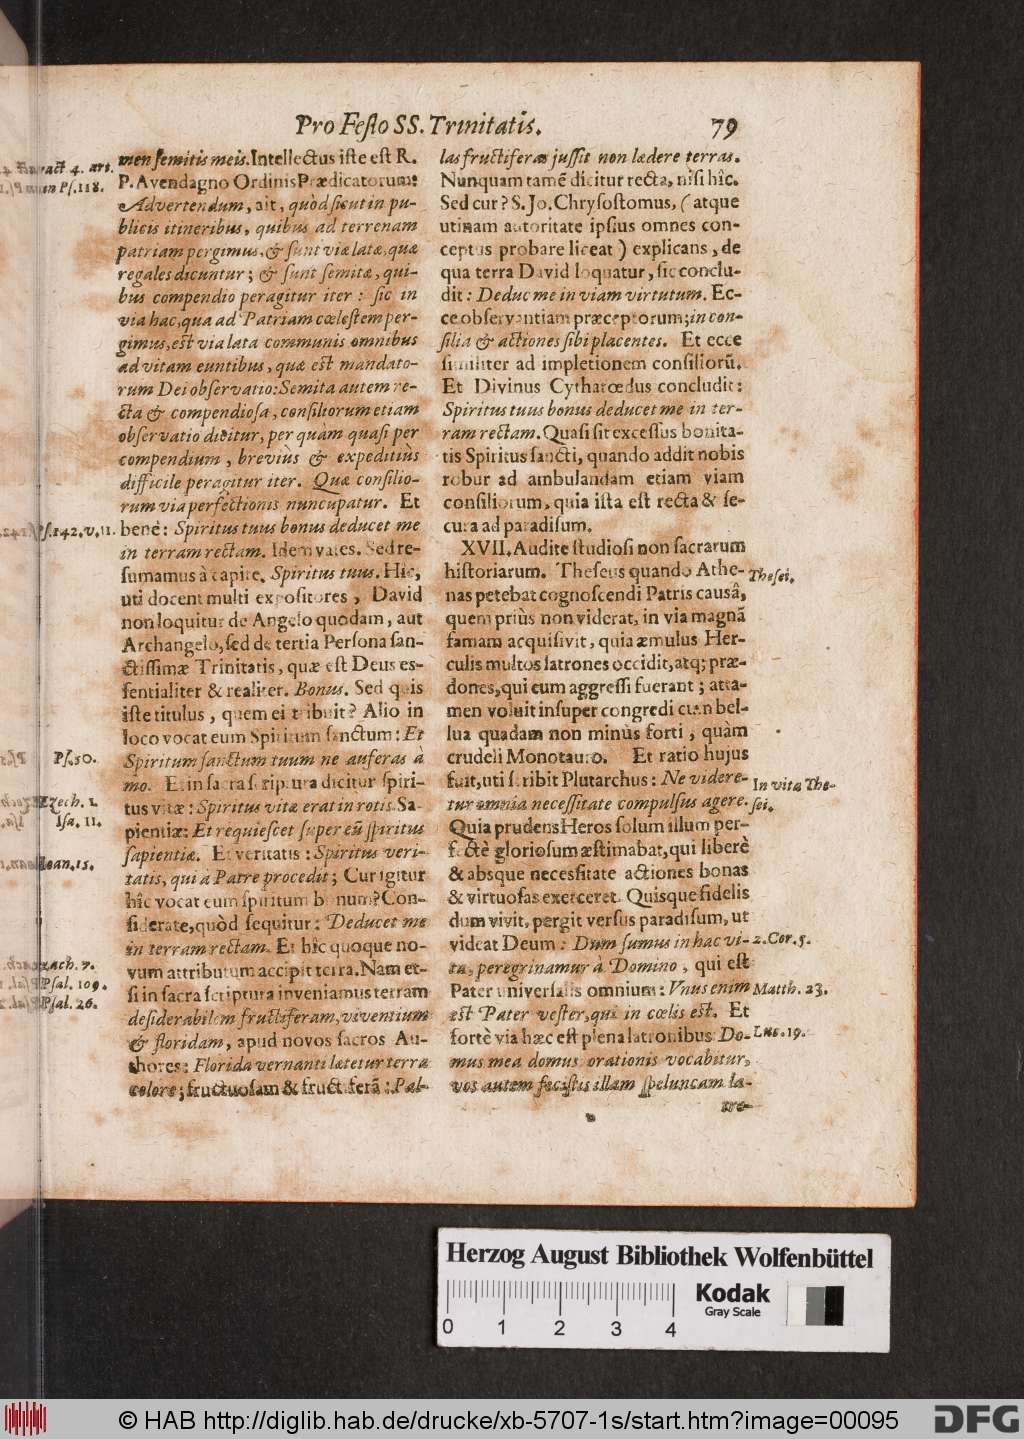 Pro Festo SS. Trinitatis. 79
men semitis meis. Intellectus iste est R.
P. Avendagno Ordinis Prædicatorum:
Advertendum, ait, quòd sicut in pu-
blicis itineribus, quibus ad terrenam
patriam pergimus, & sunt viæ latæ, quæ
regales dicuntur; & sunt semitæ, qui-
bus compendio peragitur iter: sic in
via hac, qua ad Patriam cœlestem per-
gimus, est via lata communis omnibus
ad vitam euntibus, quæ est mandato-
rum Dei observatio: Semita autem re-
cta & compendiosa, consiliorum etiam
observatio dicitur, per quàm quasi per
compendium, brevius & expeditiùs
difficile peragitur iter. Quæ consilio-
rum via perfectionis nuncupatur. Et
benè: Spiritus tuus bonus deducet me
in terram rectam. Idem vates. Sed re-
sumamus à capite. Spiritus tuus. Hic,
uti docent multi expositores, David
non loquitur de Angelo quodam, aut
Archangelo, sed de tertia Persona san-
ctissimæ Trinitatis, quæ est Deus es-
sentialiter & realiter. Bonus. Sed quis
iste titulus, quem ei tribuit? Alio in
loco vocat eum Spiritum sanctum: Et
Spiritum sanctum tuum ne auferas à
me. Et in sacra scriptura dicitur spiri-
tus vitæ: Spiritus vitæ erat in rotis. Sa-
pientiæ: Et requiescet super eũ spiritus
sapientiæ. Et veritatis: Spiritus veri-
tatis, qui à Patre procedit; Cur igitur
hîc vocat eum spiritum bonum? Con-
siderate, quòd sequitur: Deducet me
in terram rectam. Et hîc quoque no-
vum attributum accipit terra. Nam et-
si in sacra scriptura inveniamus terram
desiderabilem fructiferam, viventium
& floridam, apud novos sacros Au-
thores: Florida vernanti lætetur terra
colore; fructuosam & fructiferã: Pal-
Charact 4. art.
Ps. 118.
Ps. 142. v. 11.
Ps. 50.
Ezech. 1.
Isa. 11.
Ioan. 15.
Zach. 7.
Psal. 109.
Psal. 26.
las fructiferas jussit non lædere terras.
Nunquam tamẽ dicitur recta, nisi hîc.
Sed cur? S. Jo. Chrysostomus, (atque
utinam autoritate ipsius omnes con-
ceptus probare liceat) explicans, de
qua terra David loquatur, sic conclu-
dit: Deduc me in viam virtutum. Ec-
ce observantiam præceptorum; in con-
silia & actiones sibi placentes. Et ecce
similiter ad impletionem consiliorũ.
Et Divinus Cytharœdus concludit:
Spiritus tuus bonus deducet me in ter-
ram rectam. Quasi sit excessus bonita-
tis Spiritus sancti, quando addit nobis
robur ad ambulandam etiam viam
consiliorum, quia ista est recta & se-
cura ad paradisum.
XVII. Audite studiosi non sacrarum
historiarum. Theseus quando Athe-
nas petebat cognoscendi Patris causâ,
quem priùs non viderat, in via magnã
famam acquisivit, quia æmulus Her-
culis multos latrones occidit, atq; præ-
dones, qui eum aggressi fuerant; atta-
men voluit insuper congredi cum bel-
lua quadam non minùs forti, quàm
crudeli Monotauro. Et ratio hujus
fuit, uti scribit Plutarchus: Ne videre-
tur omnia necessitate compulsus agere.
Quia prudens Heros solum illum per-
fectè gloriosum æstimabat, qui liberè
& absque necessitate actiones bonas
& virtuosas exerceret. Quisque fidelis
dum vivit, pergit versus paradisum, ut
videat Deum: Dum sumus in hac vi-
ta, peregrinamur à Domino, qui est
Pater universalis omnium: Vnus enim
est Pater vester, qui in cœlis est. Et
fortè via hæc est plena latronibus: Do-
mus mea domus orationis vocabitur,
vos autem fecistis illam speluncam la-
tro-
Thesei.
In vita The-
sei.
2. Cor. 5.
Matth. 23.
Luc. 19.
Herzog August Bibliothek Wolfenbüttel
Kodak
Gray Scale
0 1 2 3 4
© HAB http://diglib.hab.de/drucke/xb-5707-1s/start.htm?image=00095
DFG